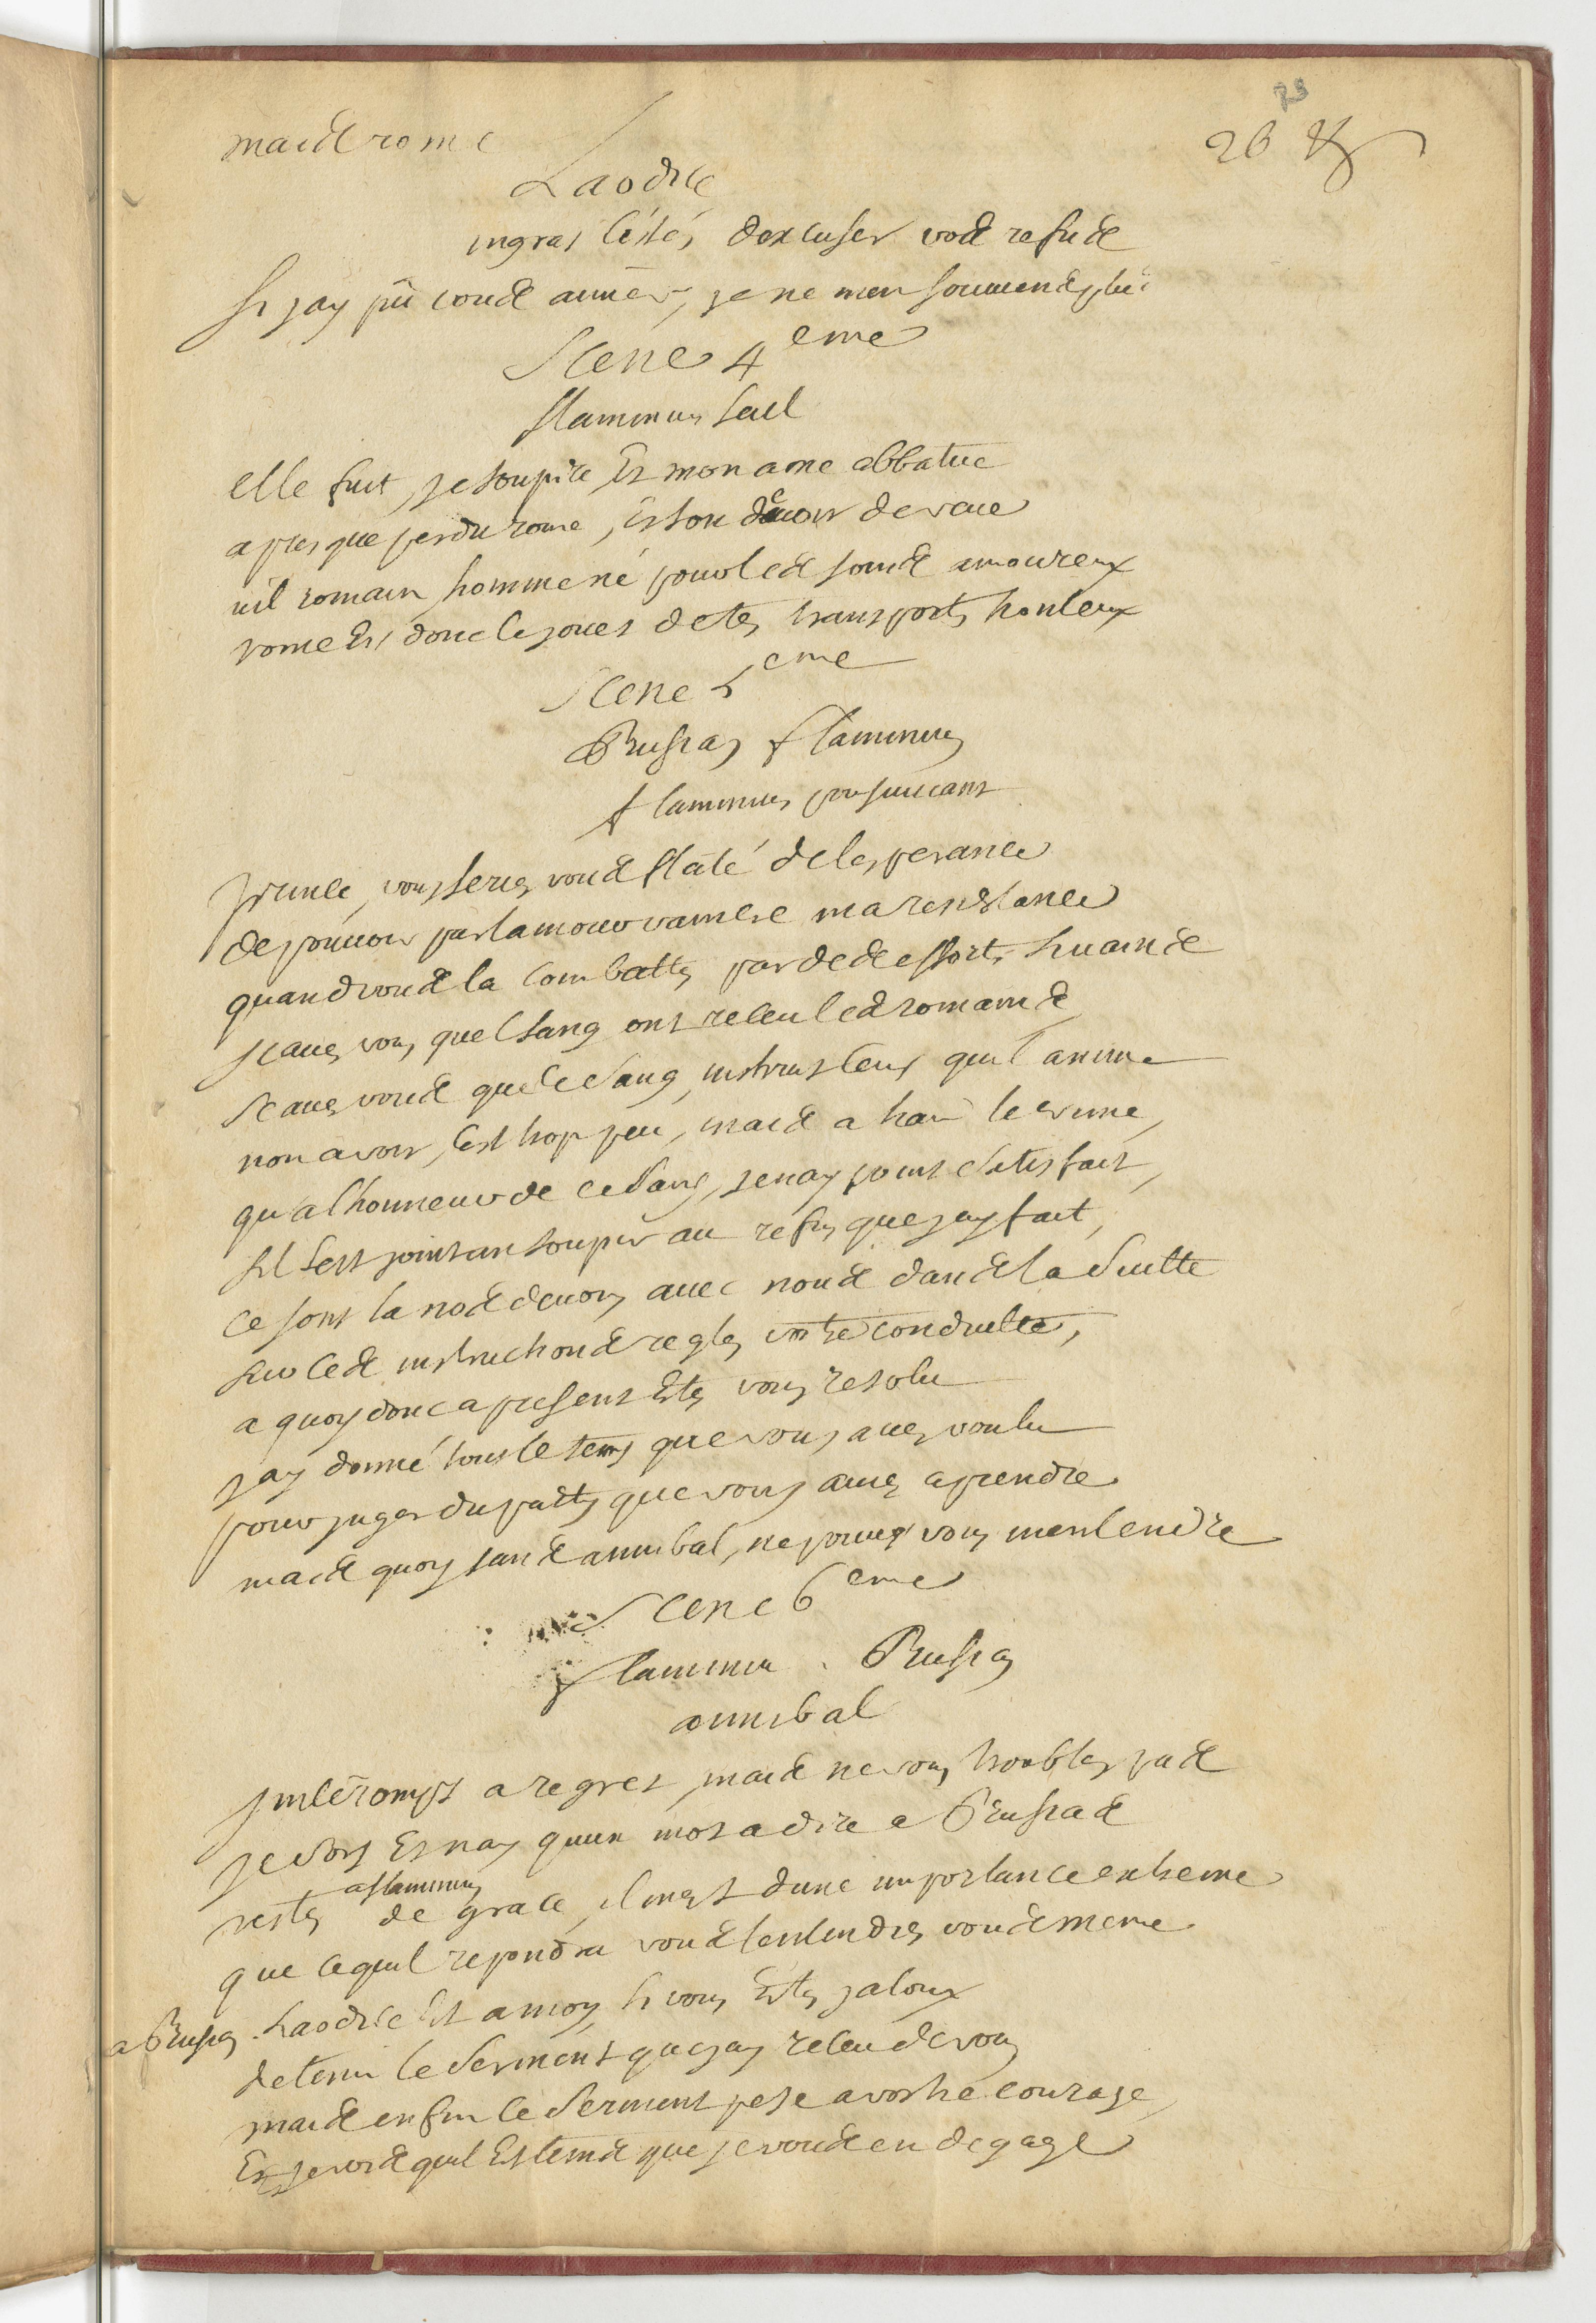 maids rome
26
Laodice
ingrat cessés dexcuser vods refuds
si jay pû vouds aimer, je ne men souviends plus
Scene 4eme
flaminius seul
elle fuit, je soupire Et mon ame abbatue
a presque perdu rome, Et son devoir de veue
vil romain homme né pour leds soinds amoureux
rome Est donc le jouet de tes transports honteux
Scene 5eme
Prusias flaminius
flaminius poursuivant
prince, vous series vouds flaté de lesperance
de pouvoir par lamour vaincre ma resistance
quand vouds la combattes par deds efforts huainds
scaves vous quel sang ont receu leds romainds
scaves vouds que ce sang, instruit ceux quil anime
non a voir, cest trop peu, maids a hair le crime,
qu'a lhonneur de ce sang, je nay point satisfait,
sil sest joint un soupir au refus que jay fait,
ce sont la nods devoirs avec nouds dands la suitte
sur ceds instructionds regles votre conduitte,
a quoy donc a present Etes vous resolu
jay donné tout le tems que vous aves voulu
pour juger du party que vous aviez a prendre
maids quoy sands annibal, ne pouvez vous mentendre
Scene 6eme
flaminiu . Prusias
annibal
jnterompt a regret, maids ne vous troubles pads
je sors Et nay quun mot a dire a Prusiads
a flaminius
restes de grace, il mest dune importance extreme
que ce quil repondra vouds lentendies vouds meme
a Prusias. Laodice Est a moy, si vous Etes jaloux
de tenir le serment que jay receu de vous
maids enfin ce serment pese a vostre courage,
Et je voids quil Est temds que je vouds en degage